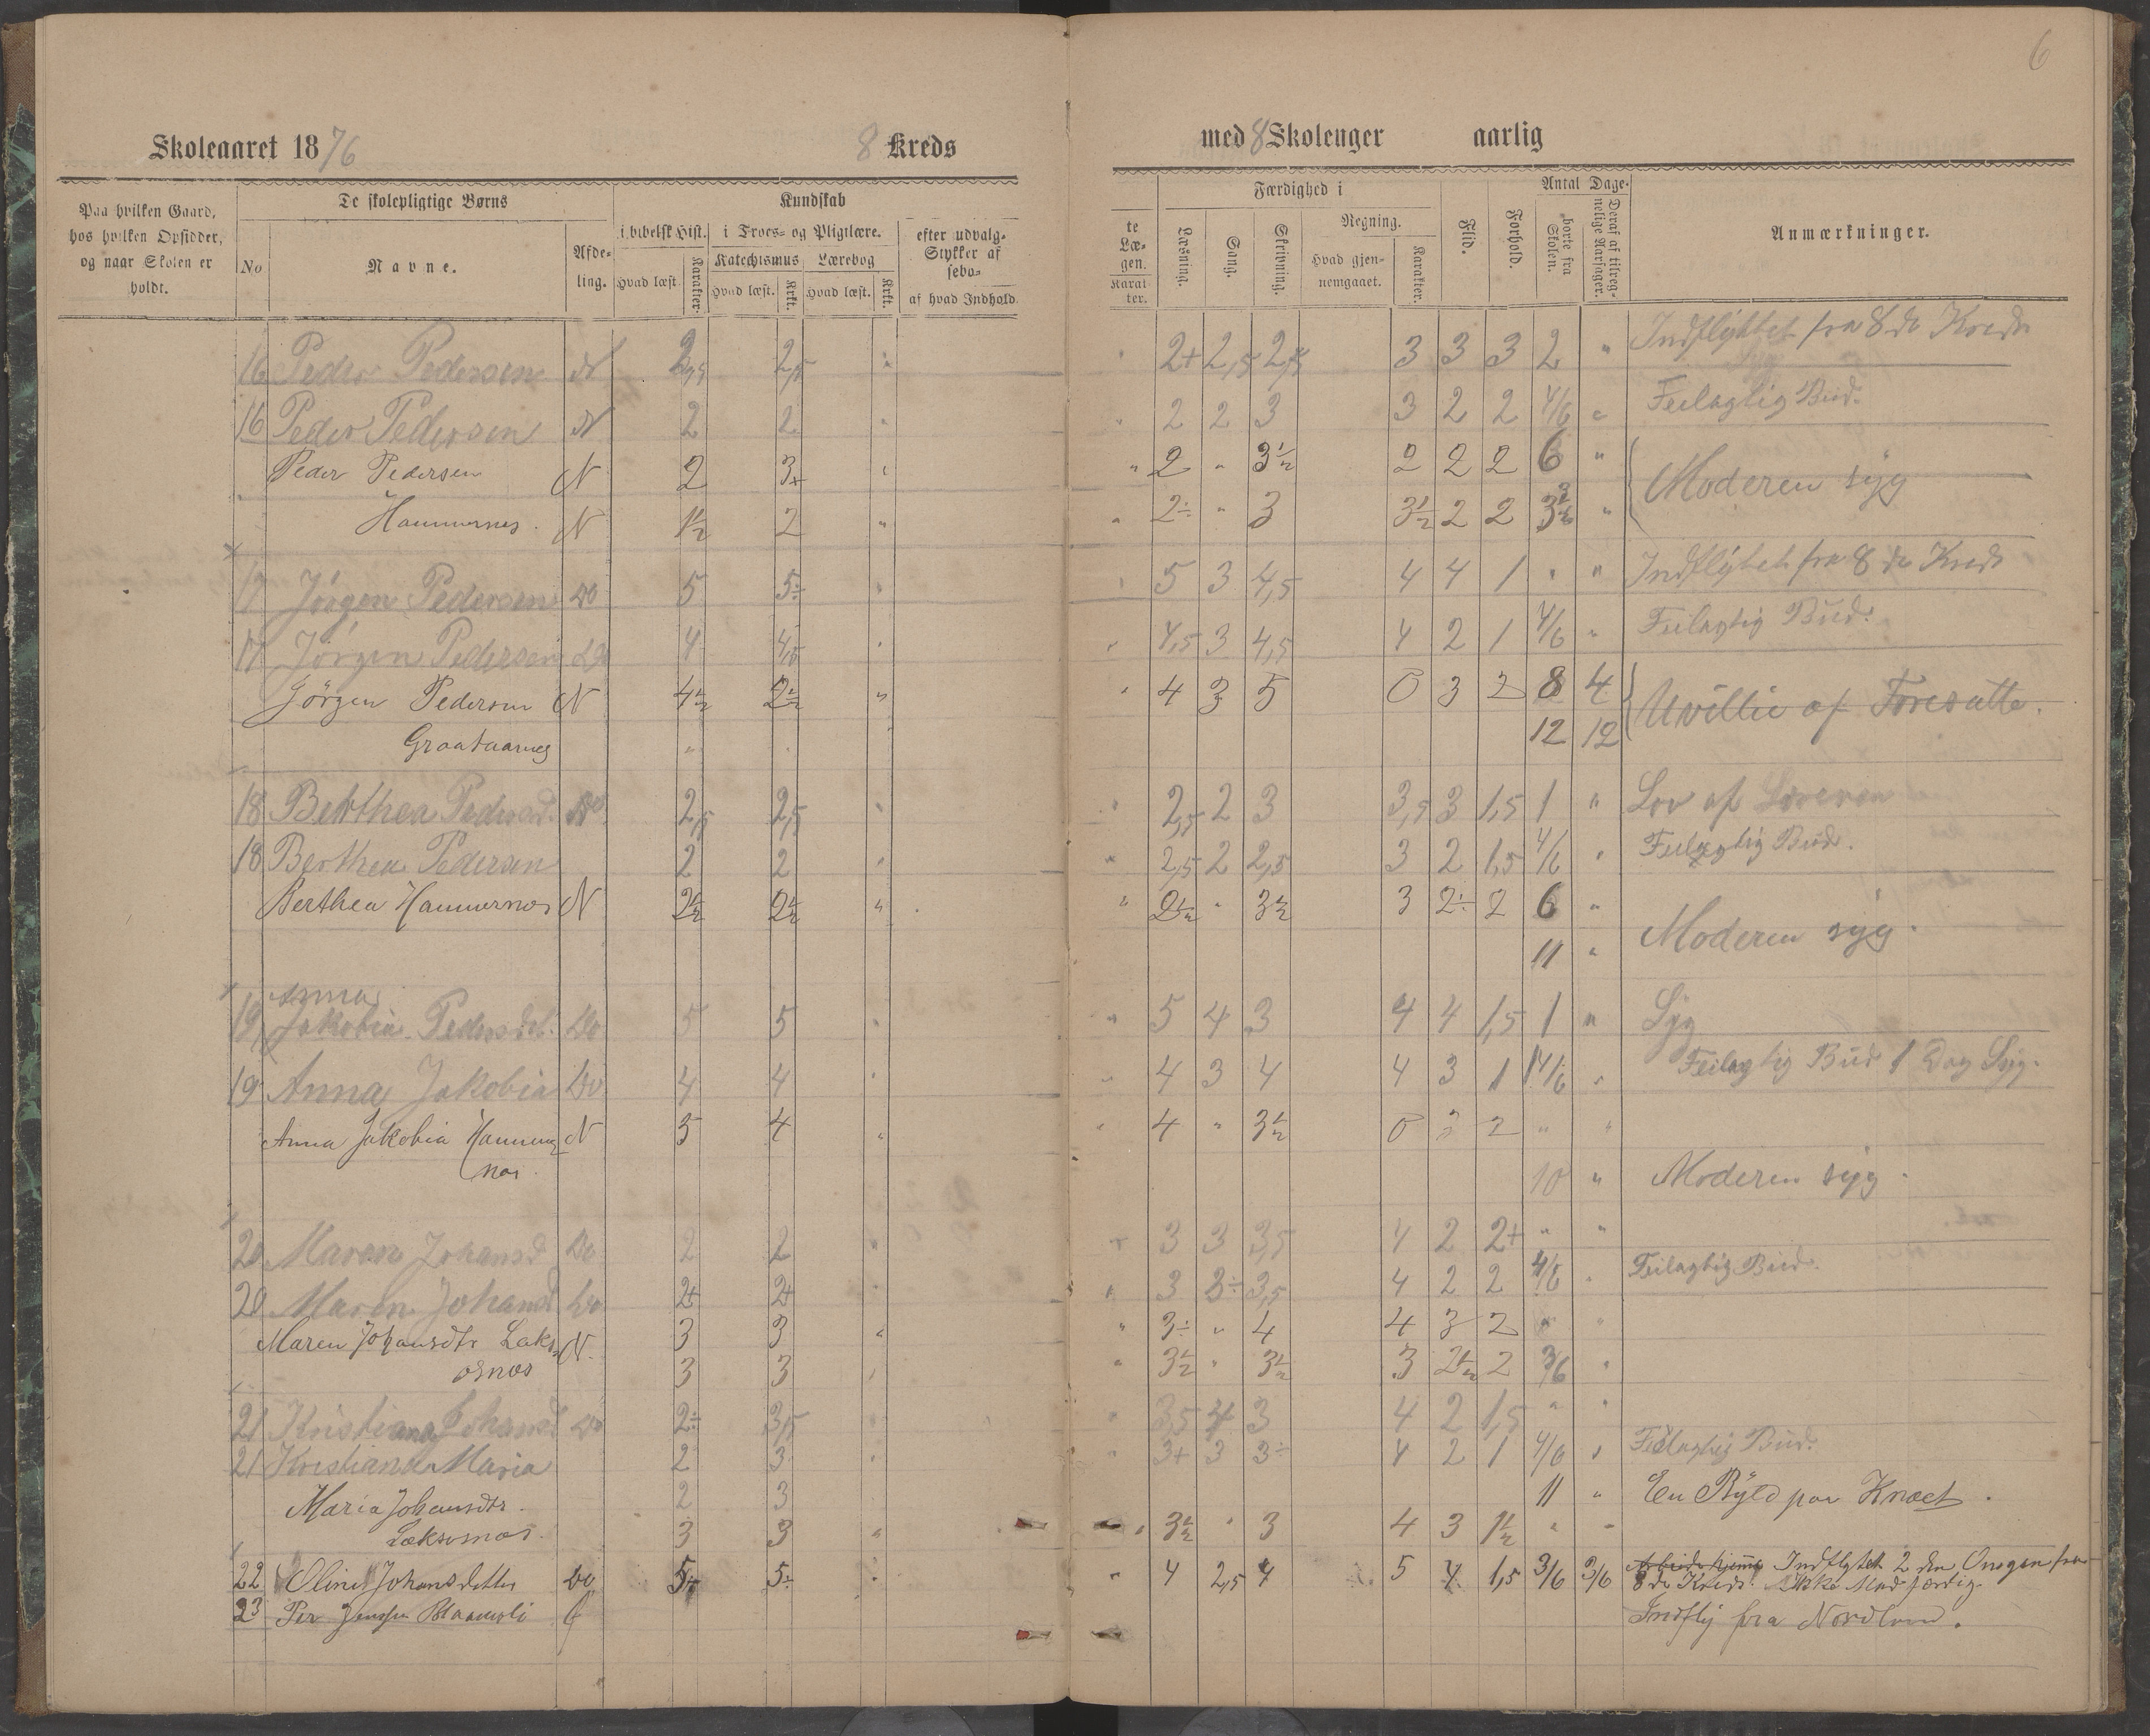 6
Skoleaaret 1876 8 Kreds med 8 Skolenger aarlig
Paa hvilken Gaard, hos hvilken Opsidder, og naar Skolen er holdt.
De skolepligtige Børns
No
Navne.
Afdeling.
Kundskab
i bibelsk Hist.
Hvad læst.
Karakter.
i Troes- og Pligtlære.
Katechismus
Hvad læst.
Krkt.
Lærebog
Hvad læst.
Krkt.
efter udvalg-
Stykker af
sebo-
af hvad Indhold.
te
Læ-
gen.
Karak-
ter.
Færdighed i
Læsning.
Sang.
Skrivning.
Regning.
Hvad gjen-
nemgaaet.
Karakter.
Flid.
Forhold.
Antal Dage.
borte fra Skolen.
Deraf af tilreg-
nelige Aarsager.
Anmærkninger.
16 Peder Pedersen N 2,5 " " 2+ 2,5 2,5 3 3 3 2 " Indflyttet fra 8de Kreds
Syg
16 Peder Pedersen N 2 2 " " 2 2 3 3 2 2 4/6 " Feilagtig Bud.
Peder Pedersen N 2 3+ " " 2 " 3½ 2 2 2 6 " Moderen syg
Hammernes. N 1½ 2 " " 2÷ " 3 3½ 2 2 "
17 Jörgen Pedersen Do 5 5÷ " " 5 3 4,5 4 4 1 " " Indflytet fra 8de Kreds
17 Jörgen Pedersen Do 4 4,5 " " 4,5 3 4,5 4 2 1 4/6 " Feilagtig Bud.
Jörgen Pedersen N 4½ 2½ " " 4 3 5 0 3 2 8 4 Uvillie af Foresatte.
Graataarnes " " 12 12
18 Berthea Pedersd. Do 2,5 2,5 " " 2,5 2 3 3,5 3 1,5 1 " Lov af Læreren
18 Berthea Pedersen 2 2 " " 2,5 2 2,5 3 2 1,5 4/6 " Feilagtig Bud.
Berthea Hammernes N 2½ 2½ " " 2½ " 3½ 3 2÷ 2 6 "
11 " Moderen syg.
Anna
19 Jakobia Pedersdt. Do 5 5 " " 5 4 3 4 4 1,5 1 " Syg
19 Anna Jakobia Do 4 4 " " 4 3 4 4 3 1 1 4/6 " Feilagtig Bud 1 Dag Syg.
Anna Jakobia Hammer N 5 4 " " 4 " 3½ 0 3 2 " "
nes. 10 " Moderen syg.
20 Maren Johansd Do 2 2 " " 3 3 3,5 4 2 2+ " "
20 Maren Johansd Do 2+ 2+ " " 3 3÷ 3,5 4 2 2 4/6 " Feilagtig Bud.
Maren Johansdtr Laks N. 3 3 " " 3÷ " 4 4 3 2 " "
osnæs 3 3 " " 3½ " 3½ 3 2½ 2 3/6 "
21 Kristiana Johansd Do 2÷ 3,5 " " 3,5 4 3 4 2 1,5 " "
21 Kristiana Maria 2 3 " " 3+ 3 3÷ 4 2 1 4/6 " Feilagtig Bud.
Maria Johansdtr. 2 3 11 " En Byld paa Knæet.
Laksosnæs. 3 3 " " 3½ " 3 4 3 1½ " "
22 Oline Johansdatter Do 5÷ 5÷ " " 4 2,5 4 5 4 1,5 3/6 3/6 Arbeide hjemme Indflytet 2den Omgan fra
8de Kreds. Ikke Mad færdig.
23 Per Jenssen Indfly fra Nordland.